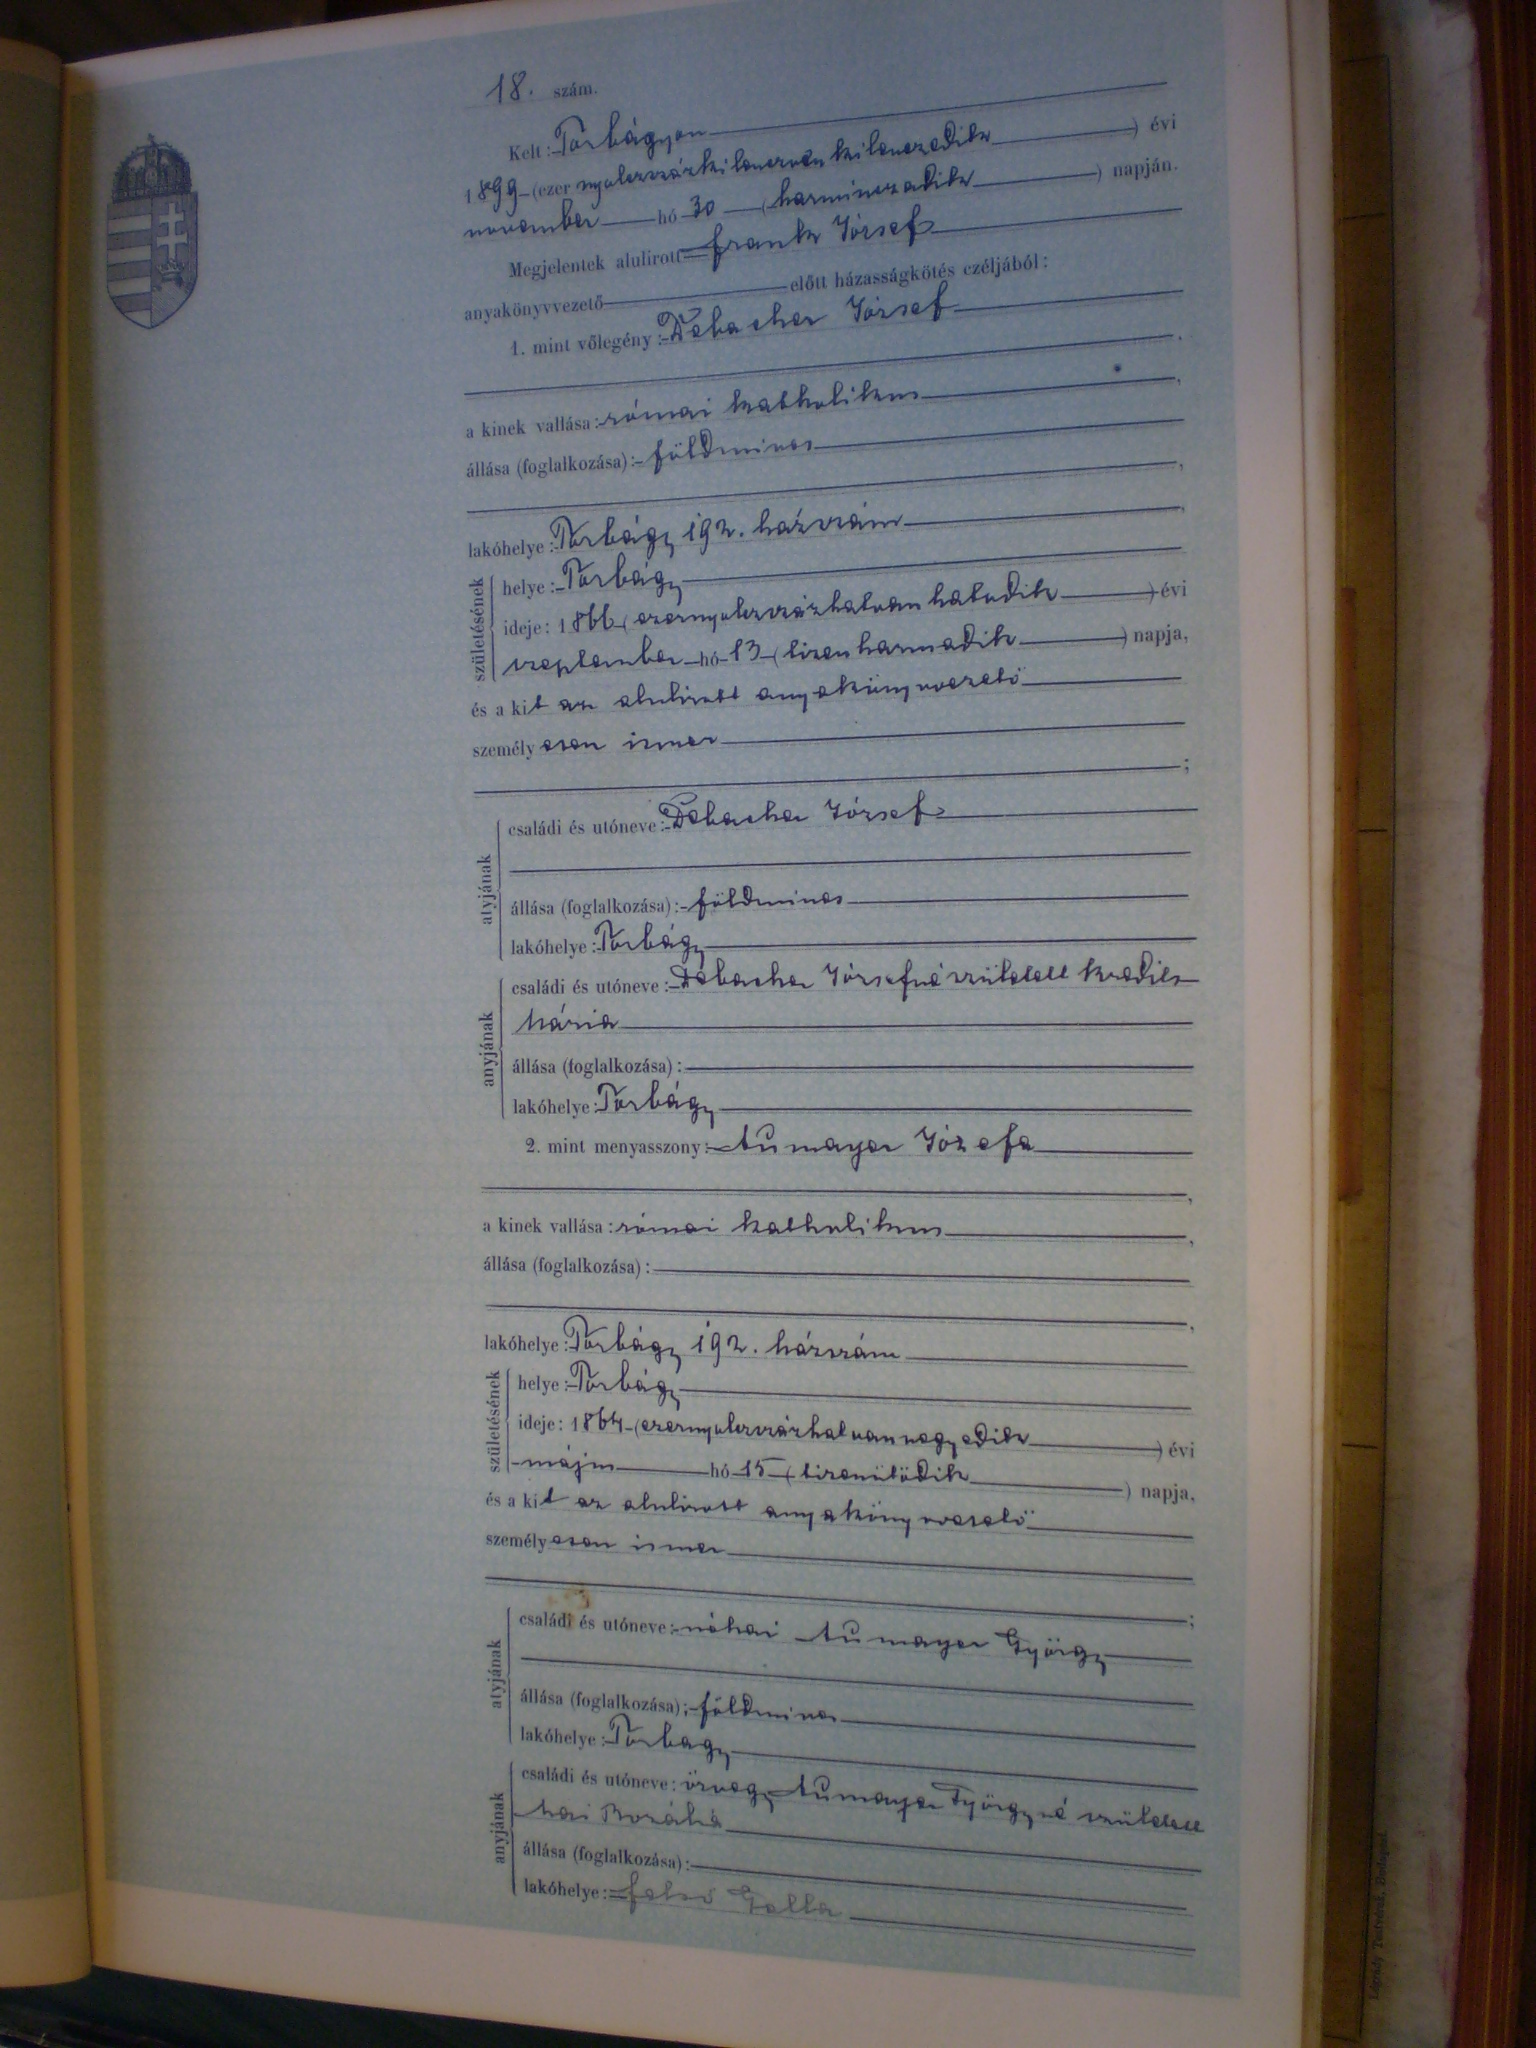 18. szám.
Kelt: Torbágyon
1899 (ezer nyolczszázkilenczvenkilenczedik) évi
november hó 30 (harminczadik) napján.
Megjelentek alulirott Frank József
anyakönyvvezető előtt házasságkötés czéljából:
1. mint vőlegény: Debacher József
,
a kinek vallása: római katholikus,
állása (foglalkozása): földmives
,
lakóhelye: Torbágy 192. házszám,
születésének
helye: Torbágy
ideje: 1866 (ezernyolczszázhatvanhatodik) évi
szeptember hó 13 (tizenharmadik) napja,
és a kit az alulirott anyakönyvvezető
személyesen ismer
;
atyjának
családi és utóneve: Debacher József
állása (foglalkozása): földmives
lakóhelye: Torbágy
anyjának
családi és utóneve: Debacher Józsefné született
Mária
állása (foglalkozása):
lakóhelye: Torbágy
2. mint menyasszony: Aumayer Józefa
,
a kinek vallása: római katholikus,
állása (foglalkozása):
,
lakóhelye: Torbágy 192. házszám
születésének
helye: Torbágy
ideje: 1864 (ezernyolczszázhatvannegyedik) évi
május hó 15 (tizenötödik) napja,
és a kit az alulirott anyakönyvvezető
személyesen ismer
;
atyjának
családi és utóneve: néhai Aumayer György
állása (foglalkozása): földmives
lakóhelye: Torbágy
anyjának
családi és utóneve: özvegy Aumayer Györgyné született
Rozália
állása (foglalkozása):
lakóhelye: Felső Galla
Légrády Testvérek, Budapest